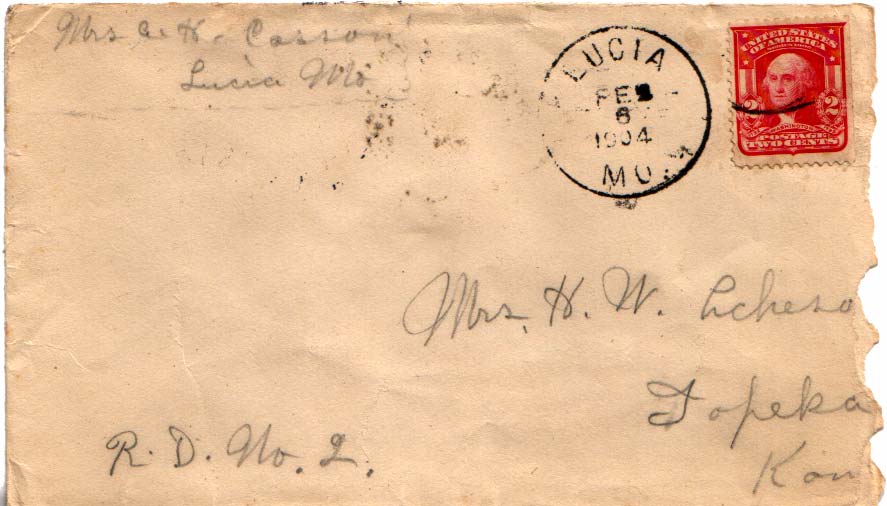 Mrs A. H. Casson
Lucia Mo
LUCIA
FEB
6
1904
MO.
UNITED STATES
OF AMERICA
2 2
WASHINGTON
POSTAGE
TWO CENTS
Mrs. H. W. Acheso
Topeka
Kan
R. D. No. 2.